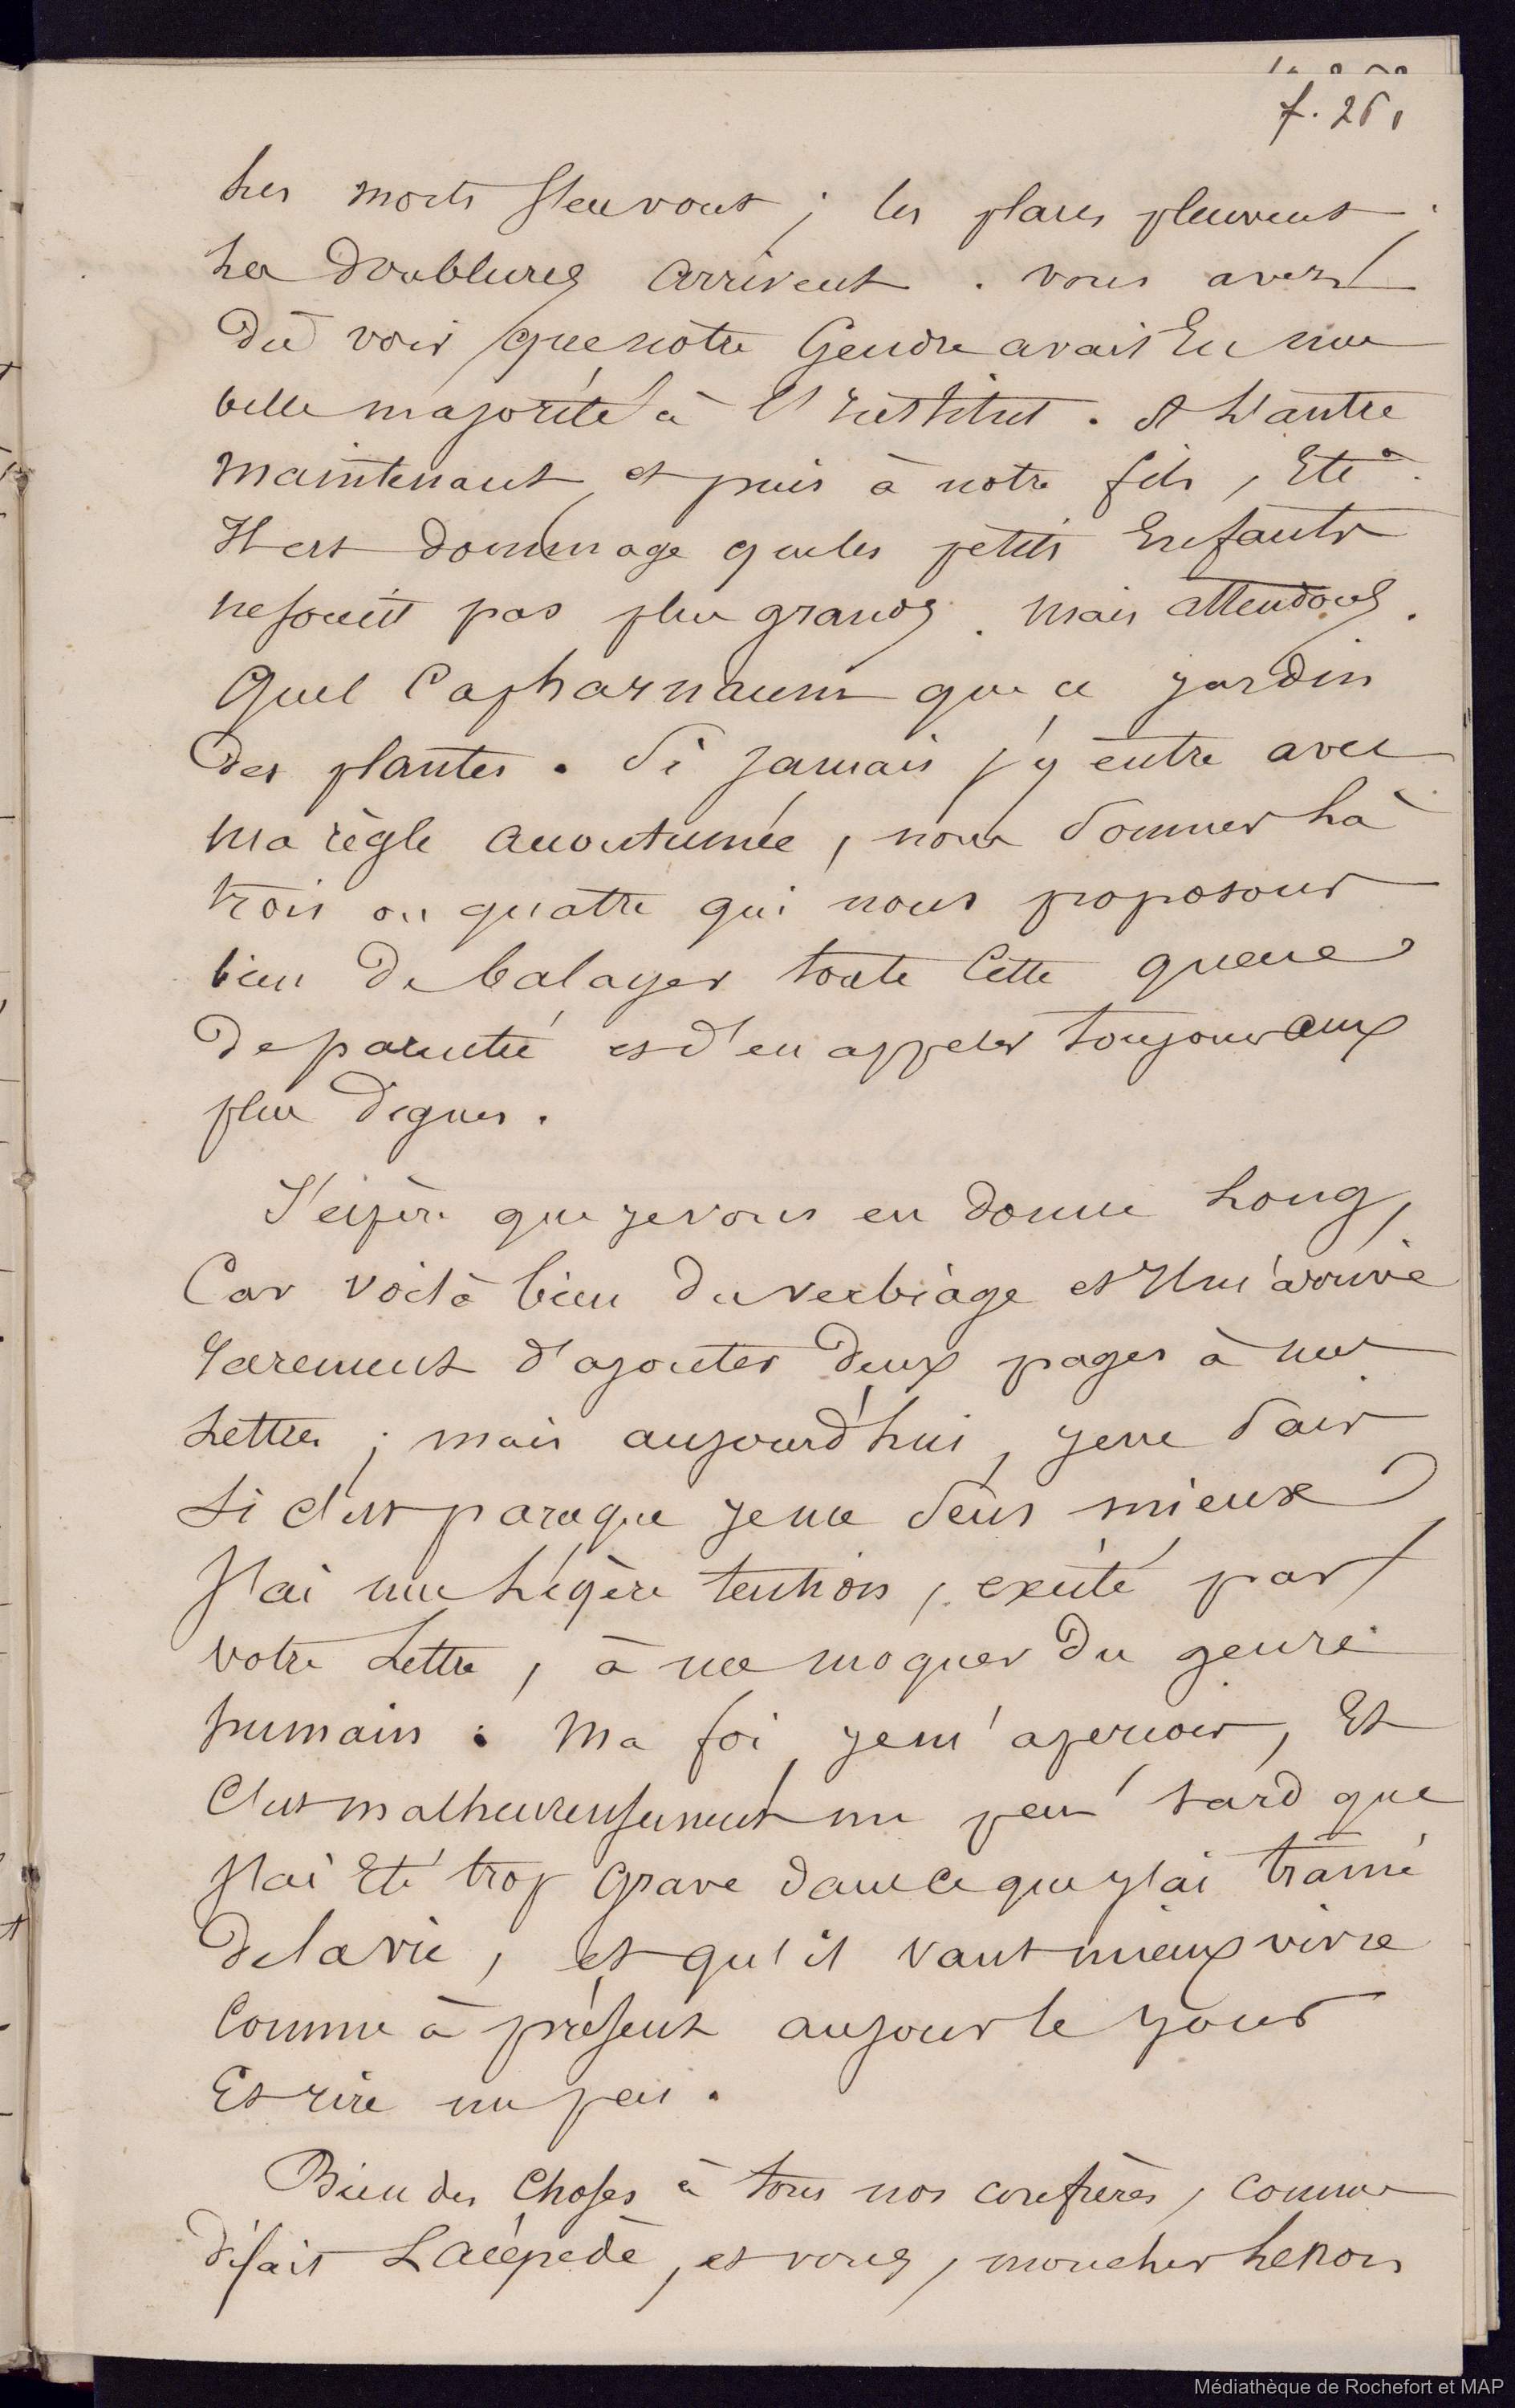 f. 251
Les morts s'en vont ; les places pleuvent ;
Les Doublures arrivent . vous avez
Dû voir que notre Gendre avait Eu une
belle majorité à l'Institut . A L'autre
maintenant, et puis à notre fils, Etc.
Il est dommage que les petits Enfants
ne soient pas plus grands . Mais attendons .
Quel Capharnaum que ce jardin
des plantes . Si jamais j'y entre avec
Ma règle accoutumée , nous Sommes Là
trois ou quatre qui nous proposons
bien De balayer toute Cette queue
De parenté et d'en appeler toujours aux
plus Dignes .
J'espère que je vous en donne Long,
Car voilà bien du verbiage et Il m'arrive
rarement d'ajouter Deux pages à mes
Lettres ; mais aujourd'hui , je ne Sais
Si c'est parceque je me Sens mieux
J'ai une Légère tention , excité par
votre Lettre , à me moquer Du genre
humain . Ma foi, je m'aperçois, Et
C'est malheureusement un peu tard que
J'ai Eté trop Grave dans ce que j'ai traîné
De la vie , et qu'il vaut mieux vivre
Comme à présent au jour le jour
Et rire un peu .
Bien des Choses à tous nos confrères, comme
disait Lacépède, et vous, mon cher Lesson
Médiathèque de Rochefort et MAP